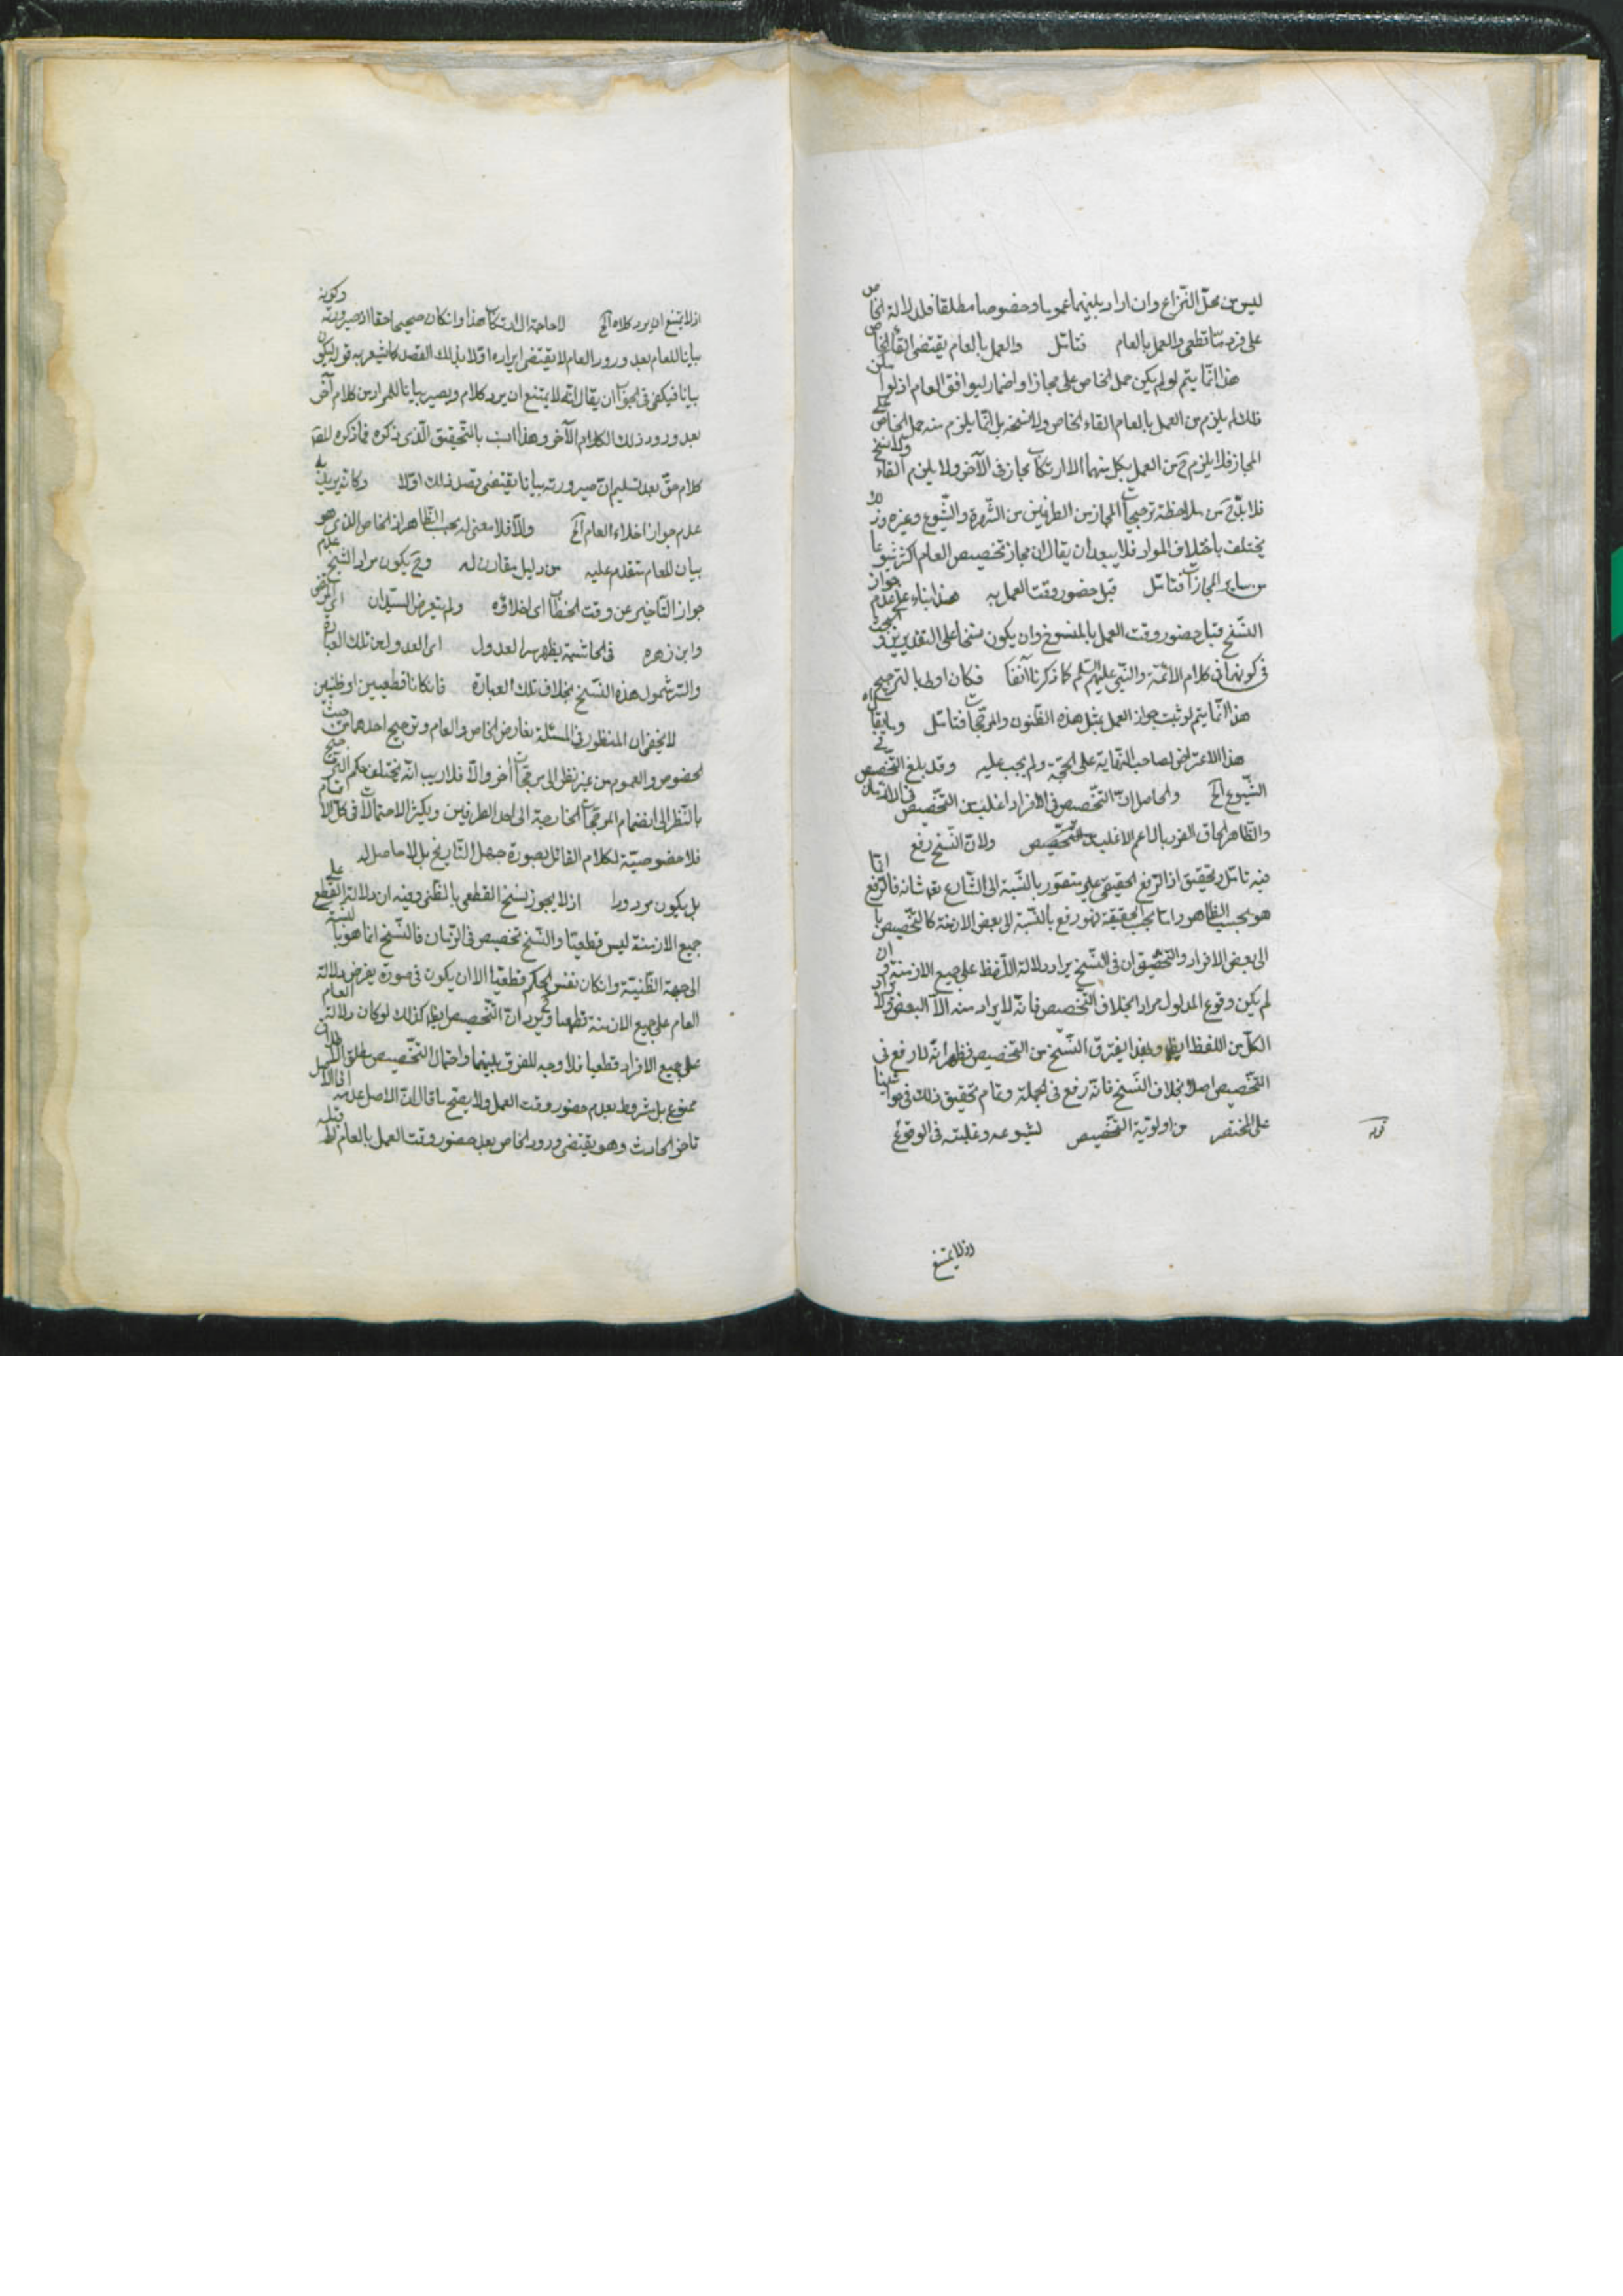 ليس من محل النزاع وان اراد بينهما عموما وخصوصا مطلقا فدلالة الخاص
على فرد ما قطعى والعمل بالعام فتامّل والعمل بالعام يقتضى الغاء الخاص
هذا انّما يتم لو لم يكن حمل الخاص على مجاز او اضمار ليوافق العام اذ لو امكن
ذلك لم يلزم من العمل بالعام الغاء الخاص ولا نسخه بل انّما يلزم منه حمل الخاص على
المجاز فلا يلزم ح من العمل بكل منهما الا ارتكاب مجاز فى الآخر ولا يلزم الغاء ولا نسخ
فلا بدّ ح من ملاحظة ترجيحات المجاز من الطرفين من الشهرة والشّيوع وغيره وذلك
يختلف باختلاف الموارد فلا يبعد ان يقال ان مجاز تخصيص العام اكثر شيوعا
من ساير المجازات فتامّل قبل حضور وقت العمل به هذا بناء على عدم جواز
النّسخ قبل حضور وقت العمل بالمنسوخ وان يكون نسخا على التقديرين
فى كونهما فى كلام الائمّة والنبى عليهم السّلم كما ذكرنا آنفا فكان اولى بالترجيح
هذا انّما يتم لو ثبت جواز العمل بمثل هذه الظّنون والمرجّحات فتامّل
هذا الاعتراض لصاحب النّهاية على الحجّة ولم يجب عليه وقد بلغ التّخصيص فى
الشّيوع الخ والحاصل انّ التّخصيص فى الافراد اغلب من التّخصيص فى الازمان
والظّاهر الحاق الفرد بالاعم الاغلب ولانّ النّسخ رفع
فيه تامّل وتحقيق اذ الرّفع الحقيقى غير متصوّر بالنّسبة الى الشّارع تعالى شانه فالرّفع انّما
هو بحسب الظاهر وامّا بحسب الحقيقة فهو رفع بالنّسبة الى بعض الازمنة كالتّخصيص بالنسبة
الى بعض الافراد والتّحقيق ان فى النّسخ يراد دلالة اللّفظ على جميع الازمنة وان
لم يكن وقوع المدلول مرادا بخلاف التّخصيص فانّه لا يراد منه الّا البعض ولا يراد
الكلّ من اللفظ ايضا وبهذا يفترق النّسخ من التّخصيص فظهر انّه لا رفع فى
التّخصيص اصلا بخلاف النّسخ فانّه رفع فى الجملة وتمام تحقيق ذلك فى حواشينا
على المختصر من اولويّة التّخصيص لشيوعه وغلبته فى الوقوع
قوله
اذ لا يمتنع
اذ لا يمتنع ان يرد كلام الخ لا حاجة الى ارتكاب هذا وان كان صحيحا حقا اذ صيرورته وكونه
بيانا للعام بعد ورود العام لا يقتضى ايراده اوّلا بذلك القصد كما يشعر به قوله ليكون
بيانا فيكفى فى الجواب ان يقال انّه لا يمتنع ان يرد كلام ويصير بيانا للمراد من كلام آخر
بعد ورود ذلك الكلام الآخر وهذا انسب بالتّحقيق الّذى ذكره فما ذكره المص
كلام حقّ بعد تسليم انّ صيرورته بيانا يقتضى قصد ذلك اوّلا وكانّه يريد به
عدم جواز اخلاء العام الخ والّا فلا معنى له بحسب الظّاهر اذ الخاص الذى هو
بيان للعام متقدم عليه من دليل مقارن له وح يكون مراد الشّيخ عدم
جواز التّاخير عن وقت الخطاب اى اطلاقه ولم يتعرض السيّدان اى المرتضى
وابن زهره فى الحاشية يظهر سر العدول اى العدول عن تلك العبارة
والسّر شمول هذه النّسخ بخلاف تلك العبارة فان كانا قطعيين او ظنّيين
لا يخفى ان المنظور فى المسئلة تعارض الخاص والعام وترجيح احدهما من حيث
الخصوص والعموم من غير نظر الى مرجّحات أخر والّا فلا ريب انّه يختلف حكم الترجيح
بالنّظر الى انضمام المرجّحات الخارجة الى احد الطرفين ويكثر الاحتمالات فى كل الاقسام
فلا خصوصيّة لكلام القائل بصورة جهل التّاريخ بل لا حاصل له
بل يكون مردودا اذ لا يجوز نسخ القطعى بالظّنى وفيه ان دلالة القطع على
جميع الازمنة ليس قطعيّا والنّسخ تخصيص فى الزّمان فالنّسخ انما هو بالنّسبة
الى جهة الظّنيّة وان كان نفس الحكم قطعيّا الا ان يكون فى صورة يفرض دلالة
العام على جميع الازمنة قطعيا وح يرد انّ التّخصيص ايضا كذلك لو كان دلالة العام
على جميع الافراد قطعيا فلا وجه للفرق بينهما واحتمال التّخصيص
ممنوع بل مشروط بعدم حضور وقت العمل ولا يصحّ ما قال انّ الاصل عدمه
تاخر الحادث وهو يقتضى ورود الخاص بعد حضور وقت العمل بالعام